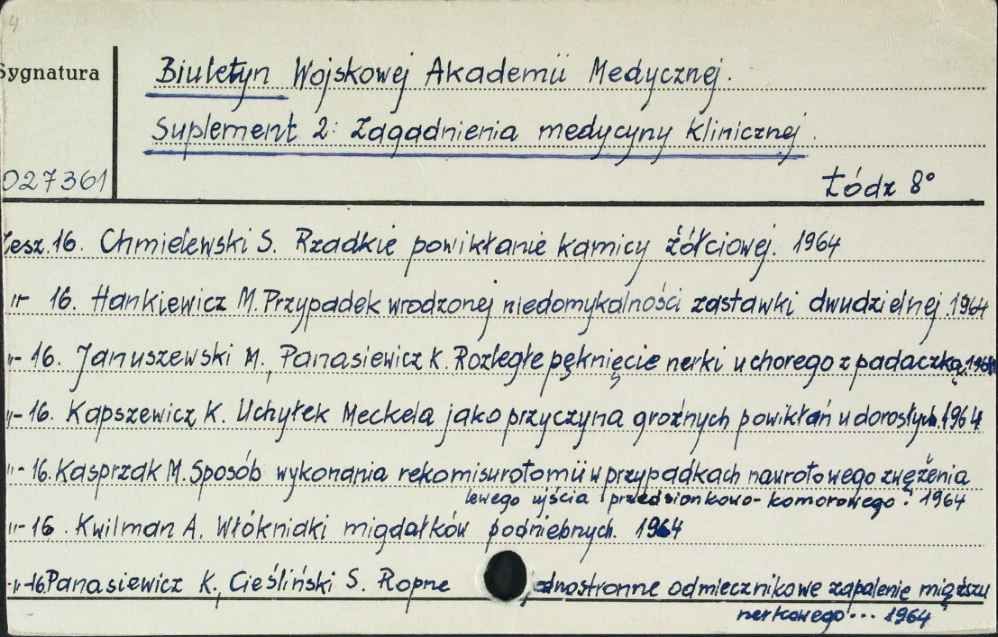 4
Sygnatura
Biuletyn Wojskowej Akademii Medycznej.
Suplement 2: Zagadnienia medycyny klinicznej.
027361
Łódź 8°
Zesz. 16. Chmielewski S. Rzadkie powikłanie kamicy żółciowej. 1964
-"- 16. Hankiewicz M. Przypadek wrodzonej niedomykalności zastawki dwudzielnej. 1964
-"- 16. Januszewski M., Panasiewicz K. Rozległe pęknięcie nerki u chorego z padaczką. 1964
-"- 16. Kapszewicz K. Uchyłek Meckela jako przyczyna groźnych powikłań u dorosłych. 1964
-"- 16. Kasprzak M. Sposób wykonania rekomisurotomii w przypadkach nawrotowego zwężenia
lewego ujścia przedsionkowo-komorowego. 1964
-"- 16. Kwilman A. Włókniaki migdałków podniebnych. 1964
-"- 16. Panasiewicz K., Cieśliński S. Ropne jednostronne odmiecznikowe zapalenie miąższu
nerkowego... 1964